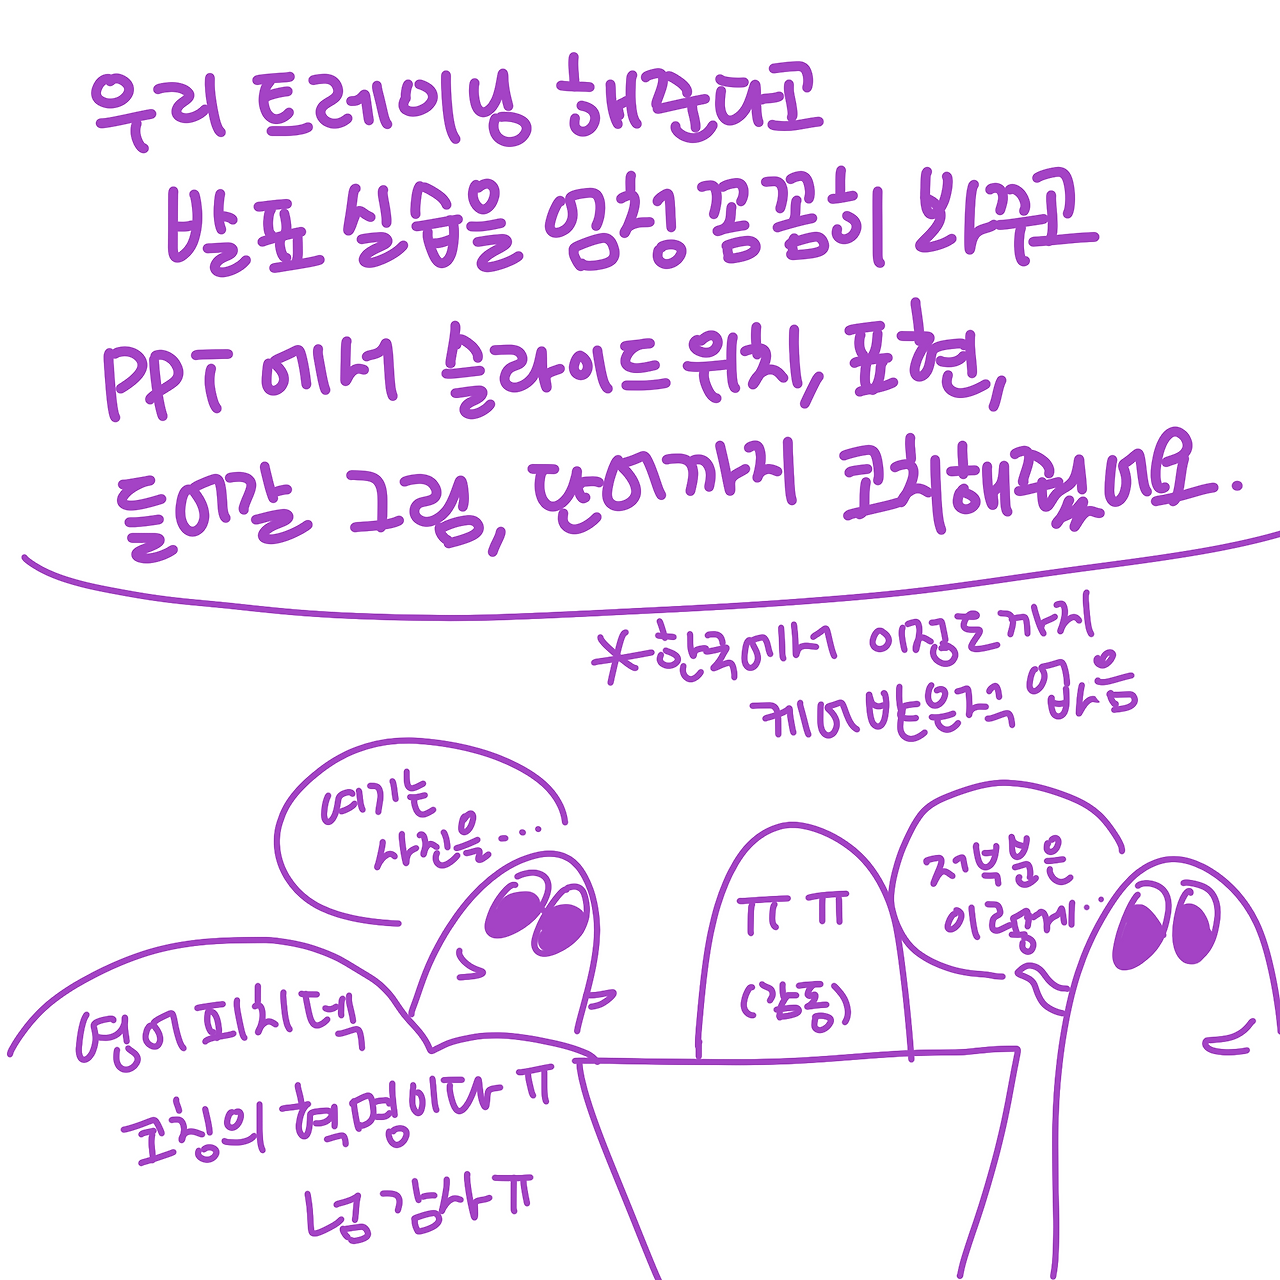 우리 트레이닝 해준다고
발표 실습을 엄청 꼼꼼히 봐꾸고
PPT에서 슬라이드 위치, 표현,
들어갈 그림, 단어까지 코치해줬어요.
*한국에서 이정도까지
케어받은적 없음
여기는
사진을...
저부분은
이렇게..
ㅠㅠ
(감동)
영어피치덱
코칭의 혁명이다ㅠ
넘감사ㅠ